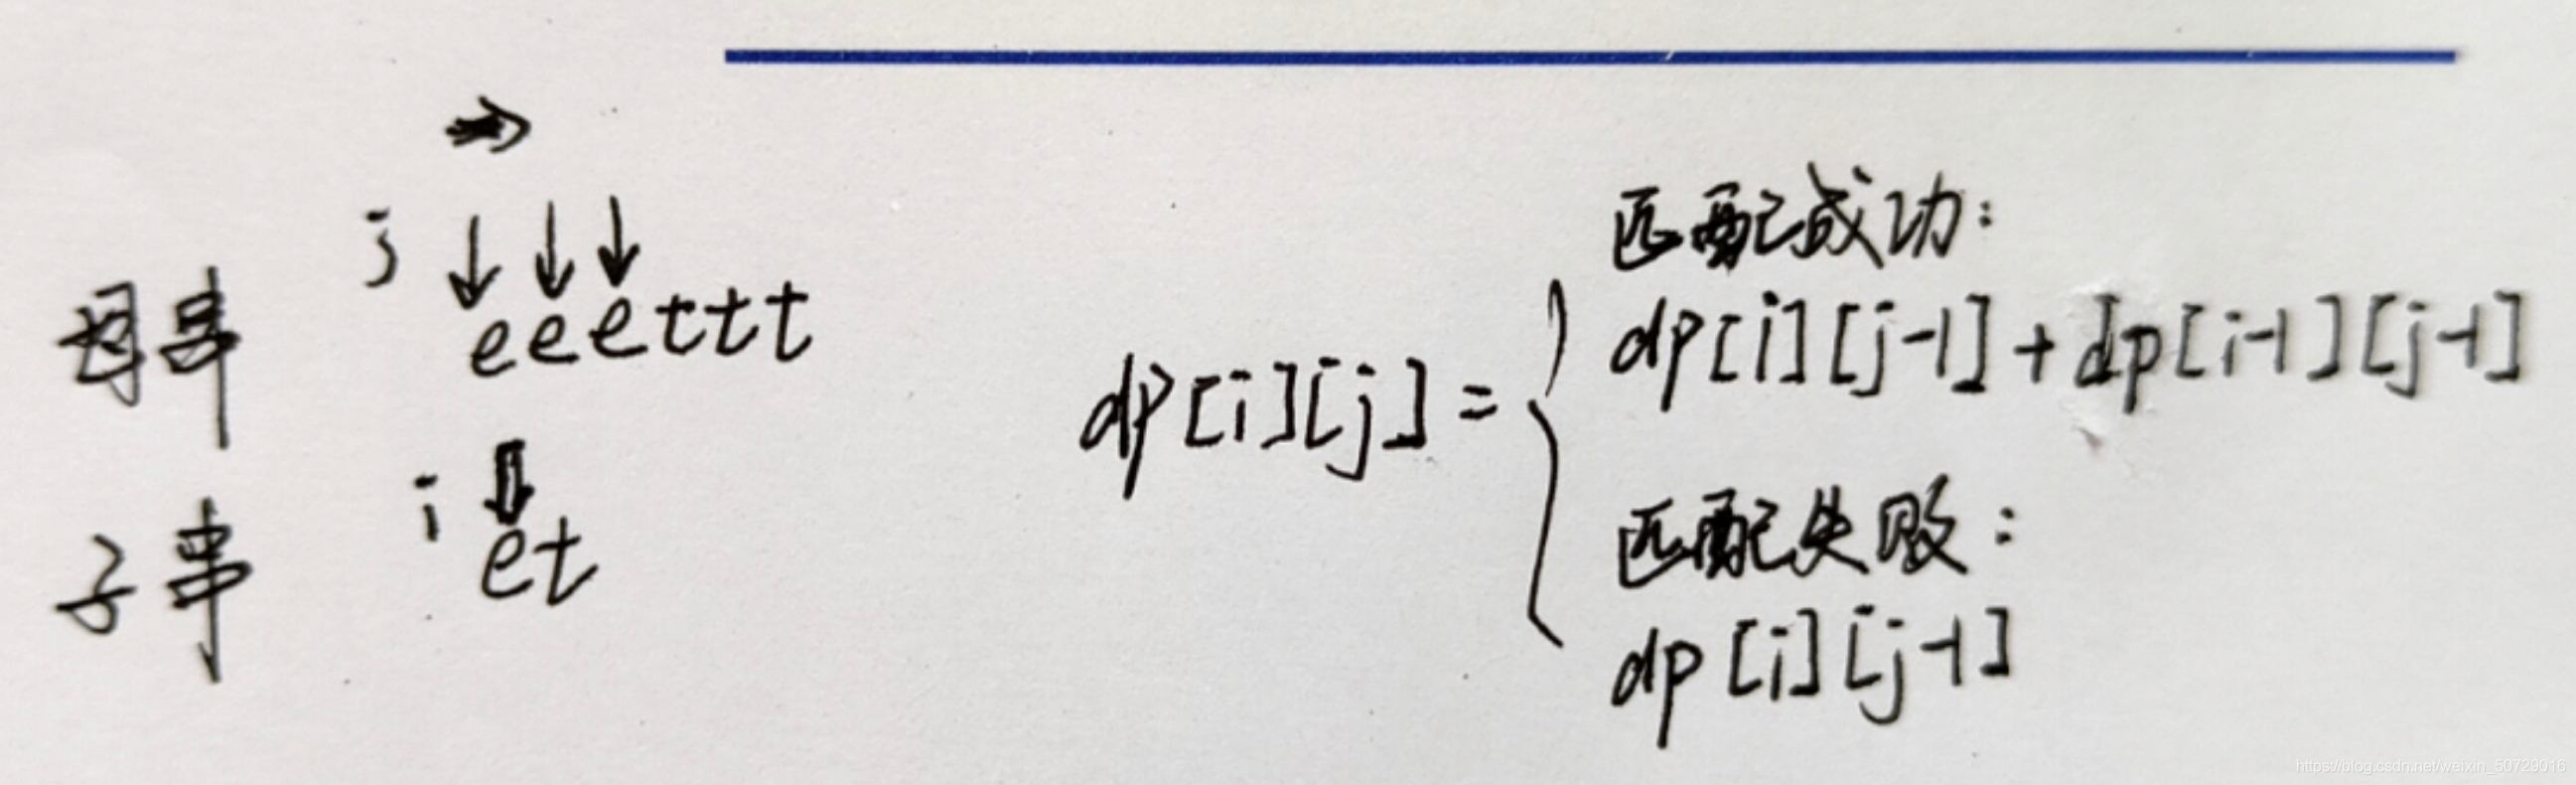 j
母串 eeettt
i
子串 et
dp[i][j] =
匹配成功:
dp[i][j-1] + dp[i-1][j-1]
匹配失败:
dp[i][j-1]
https://blog.csdn.net/weixin_50729016